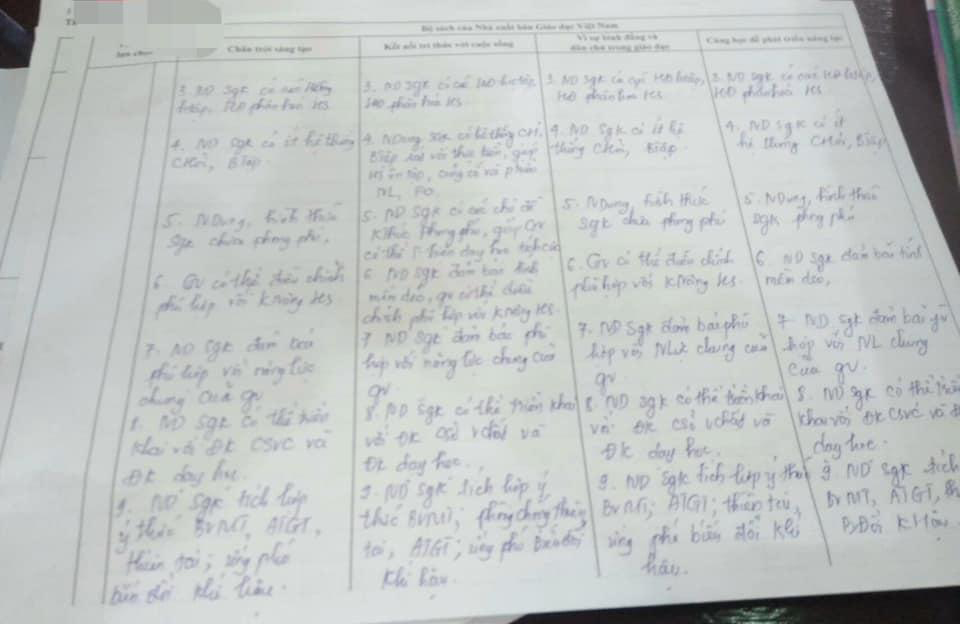 Bộ sách của Nhà xuất bản Giáo dục Việt Nam
Chân trời sáng tạo
Kết nối tri thức với cuộc sống
Vì sự bình đẳng và
dân chủ trong giáo dục
Cùng học để phát triển năng lực
3. ND Sgk có các
HĐ phân hóa HS.
4. ND Sgk có ít hệ thống
CHỏi, BTập
5. NDung, hình thức
Sgk chưa phong phú.
6. Gv có thể điều chỉnh
phù hợp với HS.
7. ND Sgk đảm bảo
phù hợp với năng lực
chung của gv
8. ND Sgk có thể triển
khai với ĐK CSVC và
ĐK dạy học.
9. ND Sgk tích hợp
ý thức BVMT, ATGT,
thiên tai; ứng phó
biến đổi khí hậu.
3. ND Sgk có các HĐ
HĐ phân hóa HS.
4. NDung Sgk có hệ thống CH,
BTập với thực tiễn, giúp
HS ôn tập, củng cố và
NL, PC.
5. ND Sgk có các chủ đề
phong phú, giúp Gv
có thể dạy học tích cực
6. ND Sgk đảm bảo tính
mềm dẻo, gv có thể điều
chỉnh phù hợp với HS.
7 ND Sgk đảm bảo phù
hợp với năng lực chung của
gv
8. ND Sgk có thể triển khai
với ĐK CSở vchất và
ĐK dạy học.
9. ND Sgk tích hợp ý
thức BVMT; phòng chống thiên
tai, ATGT; ứng phó biến đổi
khí hậu.
3. ND Sgk có các HĐ
HĐ phân hóa HS
4. ND Sgk có ít hệ
thống CHỏi, BTập
5. NDung, hình thức
Sgk chưa phong phú
6. Gv có thể điều chỉnh
phù hợp với HS.
7. ND Sgk đảm bảo phù
hợp với NLực chung của
gv
8. ND Sgk có thể triển khai
với ĐK CSở vchất và
ĐK dạy học.
9. ND Sgk tích hợp ý thức
BVMT; ATGT; thiên tai,
ứng phó biến đổi khí
hậu.
3. ND Sgk có các HĐ
HĐ phân hoá HS.
4. ND Sgk có ít
hệ thống CHỏi, BTập
5. NDung, hình thức
Sgk phong phú
6. ND Sgk đảm bảo tính
mềm dẻo,
7 ND Sgk đảm bảo
hợp với NL chung
của gv.
8. ND Sgk có thể triển
khai với ĐK CSVC và
dạy học.
9. ND Sgk tích
BVMT, ATGT,
BĐổi KHậu.